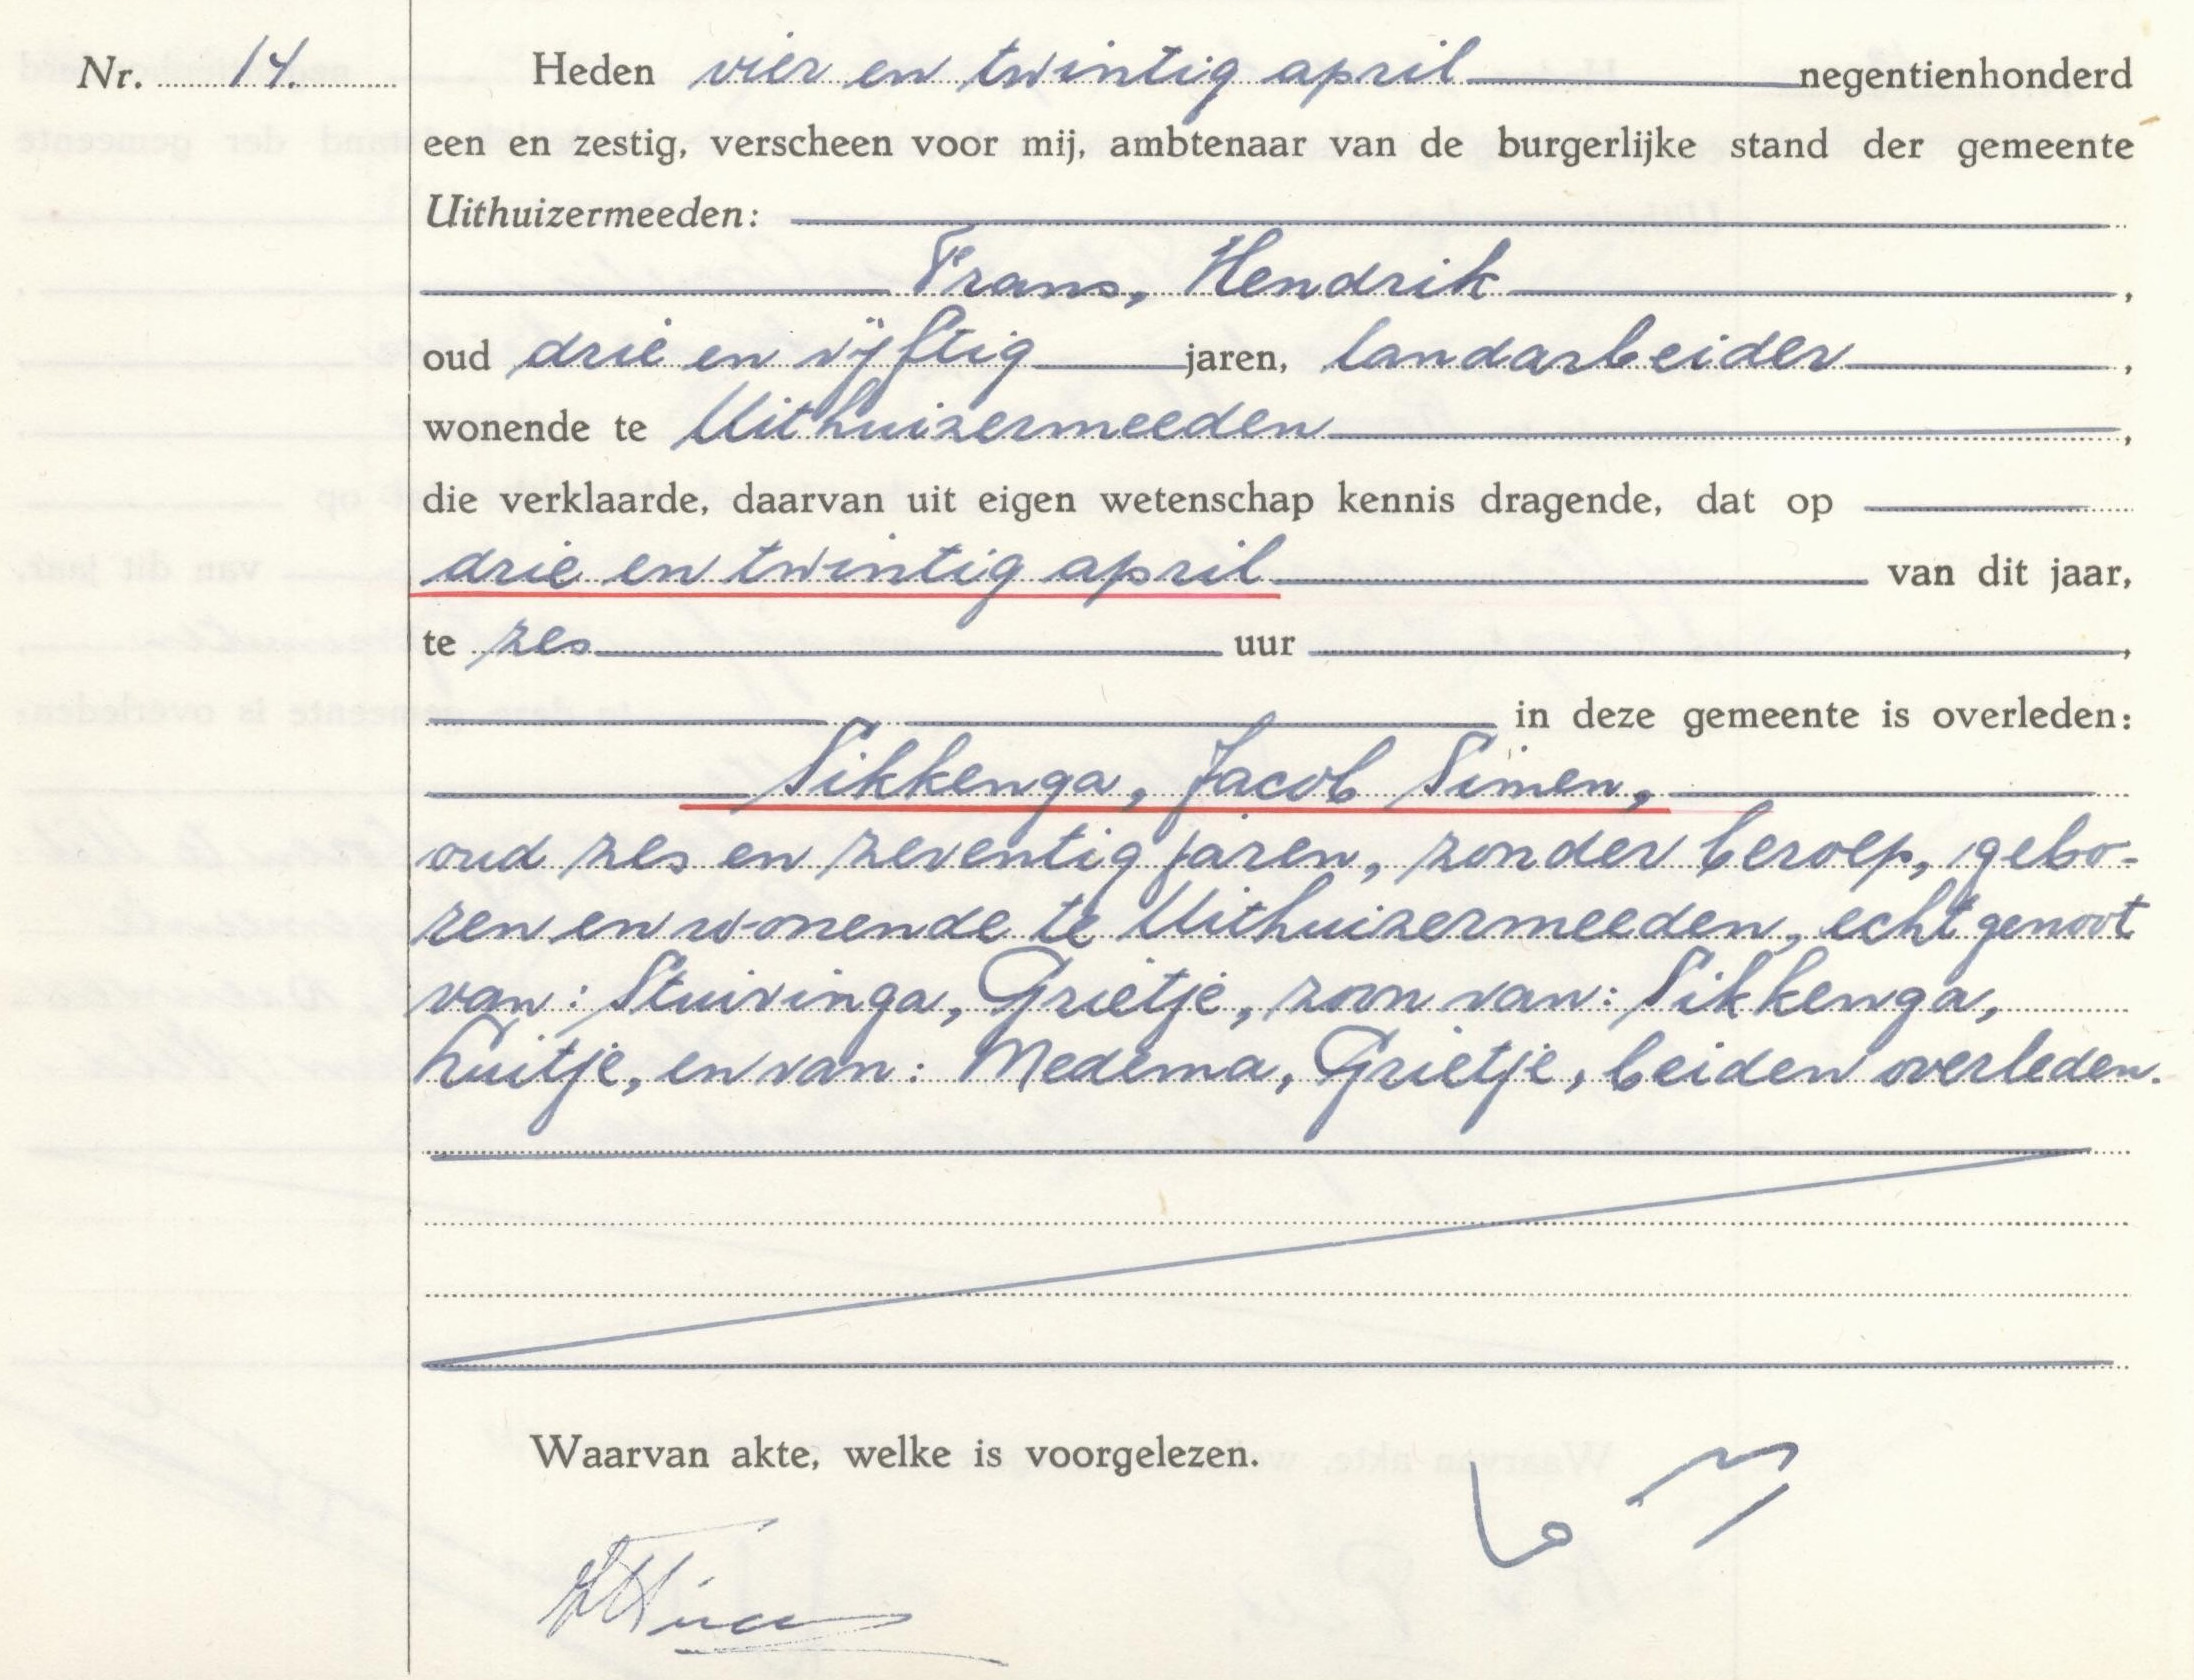 Nr. 14.
Heden vier en twintig april negentienhonderd
een en zestig, verscheen voor mij, ambtenaar van de burgerlijke stand der gemeente
Uithuizermeeden:
Frans, Hendrik,
oud drie en vijftig jaren, landarbeider,
wonende te Uithuizermeeden,
die verklaarde, daarvan uit eigen wetenschap kennis dragende, dat op
drie en twintig april van dit jaar,
te zes uur,
in deze gemeente is overleden:
Sikkenga, Jacob Simen,
oud zes en zeventig jaren, zonder beroep, gebo-
ren en wonende te Uithuizermeeden, echtgenoot
van: Stuivinga, Grietje, zoon van: Sikkenga,
Luitje, en van: Medema, Grietje, beiden overleden.
Waarvan akte, welke is voorgelezen.